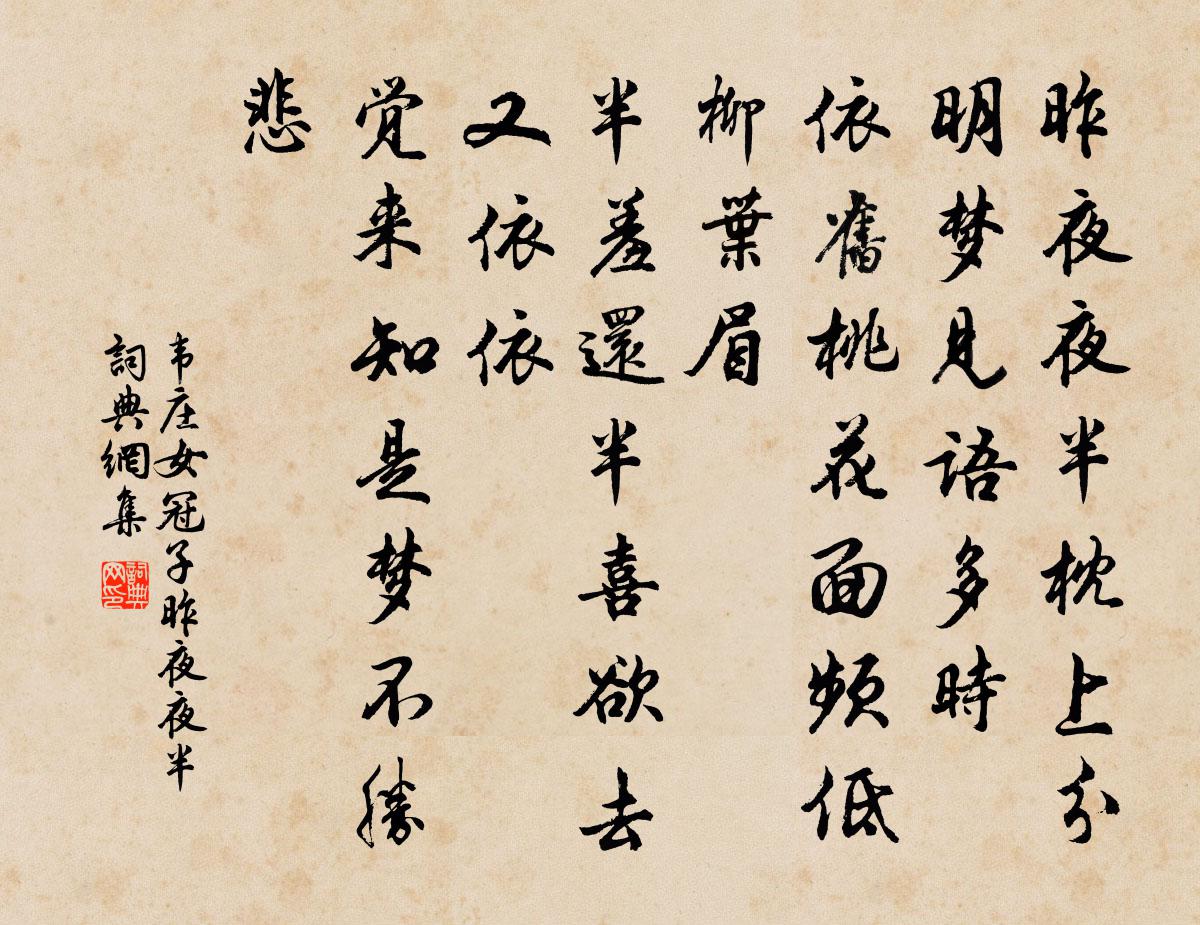 昨夜夜半枕上分
明梦見語多時
依舊桃花面頻低
柳葉眉
半羞還半喜欲去
又依依
觉来知是梦不勝
悲
韦庄女冠子昨夜夜半
詞典網集
詞典网印